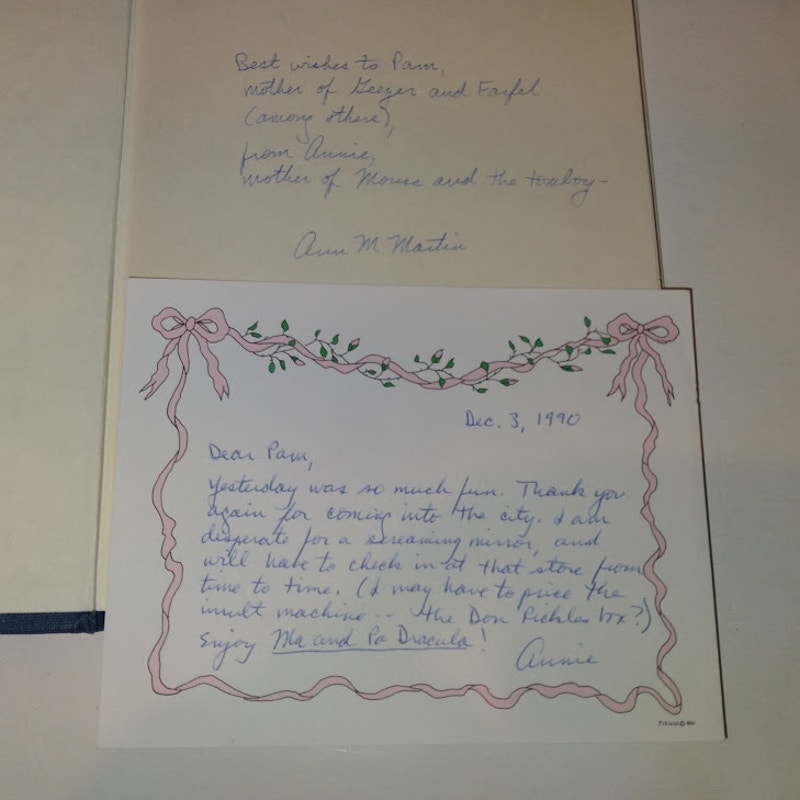 Best wishes to Pam,
mother of Geezer and Farfel
(among others),
from Annie,
mother of Mouse and the tomboy—
Ann M Martin
Dec. 3, 1990
Dear Pam,
Yesterday was so much fun. Thank you
again for coming into the city. I am
desperate for a screaming mirror, and
will have to check in at that store from
time to time. (I may have to price the
insult machine -- the Don Rickles box?)
Enjoy Ma and Pa Dracula!
Annie